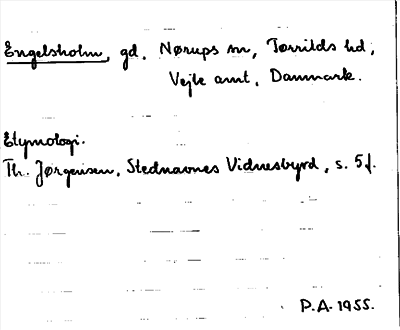 Engelsholm, gd. Nørups sn, Tørrilds hd,
Vejle amt, Danmark.
Etymologi.
Th. Jørgensen, Stednavnes Vidnesbyrd, s. 5f.
P.A. 1955.